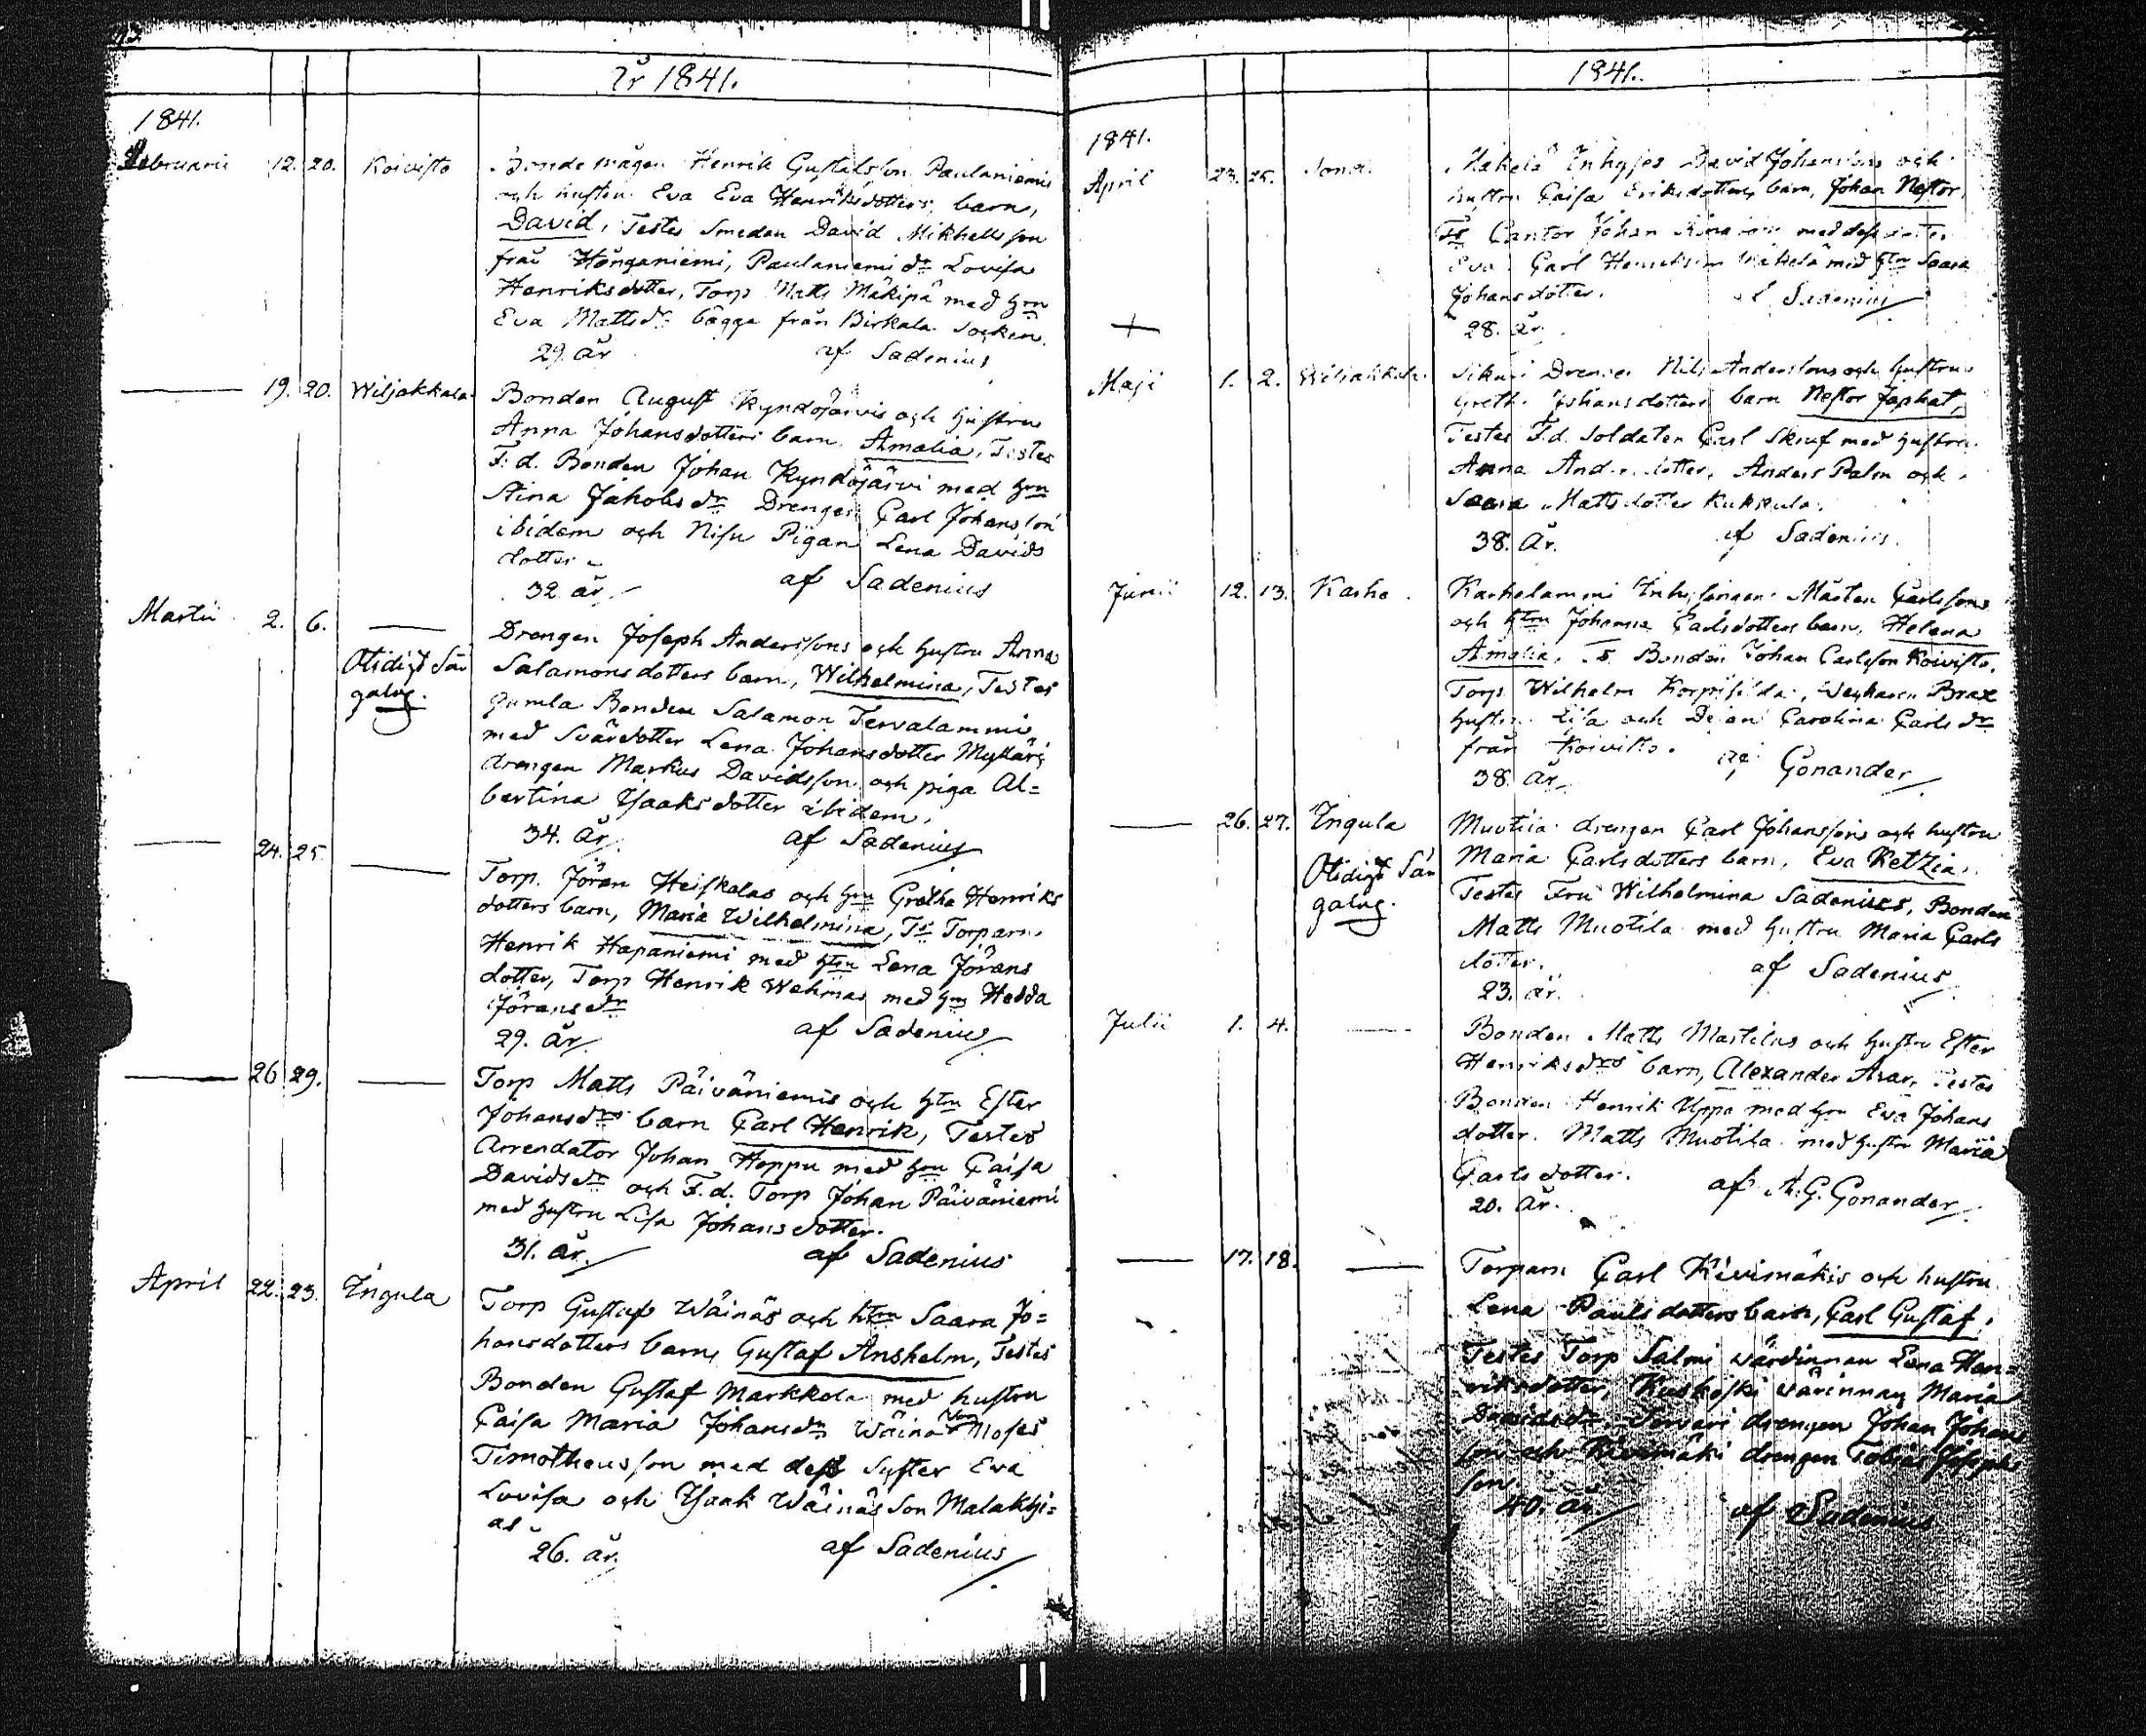 År 1841.
1841.
Februarii 12. 20. Koivisto Bonde mågen Henrik Gustafsson Paulaniemis
och hustru Eva Eva Henriksdotters, barn,
David, Testes Smeden David Mikhellsson
från Hånganiemi, Paulaniemi dr Lovisa
Henriksdotter, Torp Matts Mäkipä med hru
Eva Mattsdr bägge från Birkala Socken.
29. år af Sadenius
19. 20. Wiljakkala Bonden August Kyndöjärvis och hustru
Anna Johansdotters barn Amalia, Testes
F. d. Bonden Johan Kyndöjärvi med hru
Stina Jakobsdr Drengen Carl Johansson
ibidem och Nisu Pigan Lena Davids
dotter
32. år af Sadenius
Martii 2. 6. Drengen Joseph Anderssons och hustru Anna
Otidigt Sän
galng.
Salamonsdotters barn, Wilhelmina, Testes
gumla Bonden Salamon Tervalammi
med Svärdotter Lena Johansdotter Mylläri
drengen Markus Davidsson och piga Al=
bertina Isaaksdotter ibidem.
34. år af Sadenius
24. 25. Torp. Jöran Heiskalas och hru Gretha Henriks
dotters barn, Maria Wilhelmina, Ts Torparn
Henrik Hapaniemi med htru Lena Jörans
dotter, Torp Henrik Wehmas med hru Hedda
Jöransdr
29. år af Sadenius
26 29. Torp Matts Päiväniemis och htru Ester
Johansdrs barn Carl Henrik, Testes
Arrendator Johan Hoppu med hru Caisa
Davidsdr och F. d. Torp Johan Päiväniemi
med hustru Lisa Johansdotter.
31. år. af Sadenius
April 22. 23. Yngula Torp Gustaf Wäinäs och htru Saara Jo=
hansdotters barn, Gustaf Anshelm, Testes
Bonden Gustaf Markkola med hustru
Caisa Maria Johansdr Wäinä Moses
Timotheusson med dess Syster Eva
Lovisa och Isaak Wäinäs Son Malakhi=
as
26. år. af Sadenius
1841.
1841.
April 23. 25. Mäkelä Inhyses David Johanssons och
hustru Caisa Eriksdotters barn, Johan Nestor,
Ts Cantor Johan med dess
Eva Carl Henriksson Mäkelä med htru Saara
Johansdotter. Sadenius
28. år
Maji 1. 2. Wiljakkala Drengen Nils Anderssons och hustru
Greth. Johansdotters barn Nestor Japhat,
Testes F.d. Soldaten Carl Skruf med hustru
Anna And dotter, Anders Palm och
Saara Mattsdotter Kukkula.
38. År. af Sadenius.
Junii 12. 13. Karhe. Karhelammi Mårten Carlssons
och htru Johanna Carlsdotters barn, Helena
Amalia, Ts. Bonden Johan Carlsson Koivisto,
Torp. Wilhelm Brax
hustru Lisa och Carolina Carlsdr
från Koivisto. Gonander
38. år
26. 27. Yngula Muotila drengen Carl Johanssons och hustru
Otidigt Sän
galng.
Maria Carlsdotters barn, Eva Ketzia.
Testes Fru Wilhelmina Sadenius, Bonden
Matts Muotila med hustru Maria Carls
dotter. af Sadenius
23. år.
Julii 1. 4. Bonden Matts Mattilas och hustru Ester
Henriksdrs barn, Alexander Asar, Testes
Bonden Henrik Uppa med hru Eva Johans
dotter. Matts Muotila med hustru Maria
Carlsdotter. af A. G. Gonander
20. år.
17. 18. Torparn Carl Kivimäkis och hustru
Lena Paulsdotters barn, Carl Gustaf.
Testes Torp Salmi wärdinnan Lena Hen=
riksdotter, Kuskoski wärinnan Maria
Davidsdr Servari drengen Johan Johans
son och Kivimäki drengen Tobias Josephs
son
40. år af Sadenius